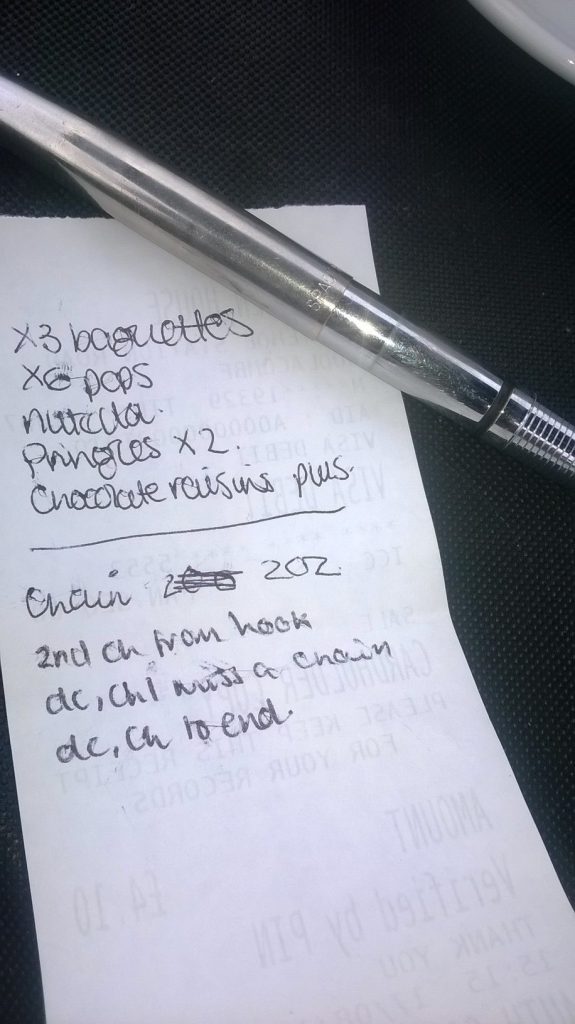 X3 baguettes
X6 pops
nutella.
Pringles X 2.
Chocolate raisins plus
Chain 202.
2nd ch from hook
dc, ch1 miss a chain
dc, ch to end.
VISA DEBIT
VISA DEBIT
CARDHOLDER COPY
PLEASE KEEP THIS RECEIPT
FOR YOUR RECORDS
AMOUNT
£4.10
Verified by PIN
THANK YOU
15:15